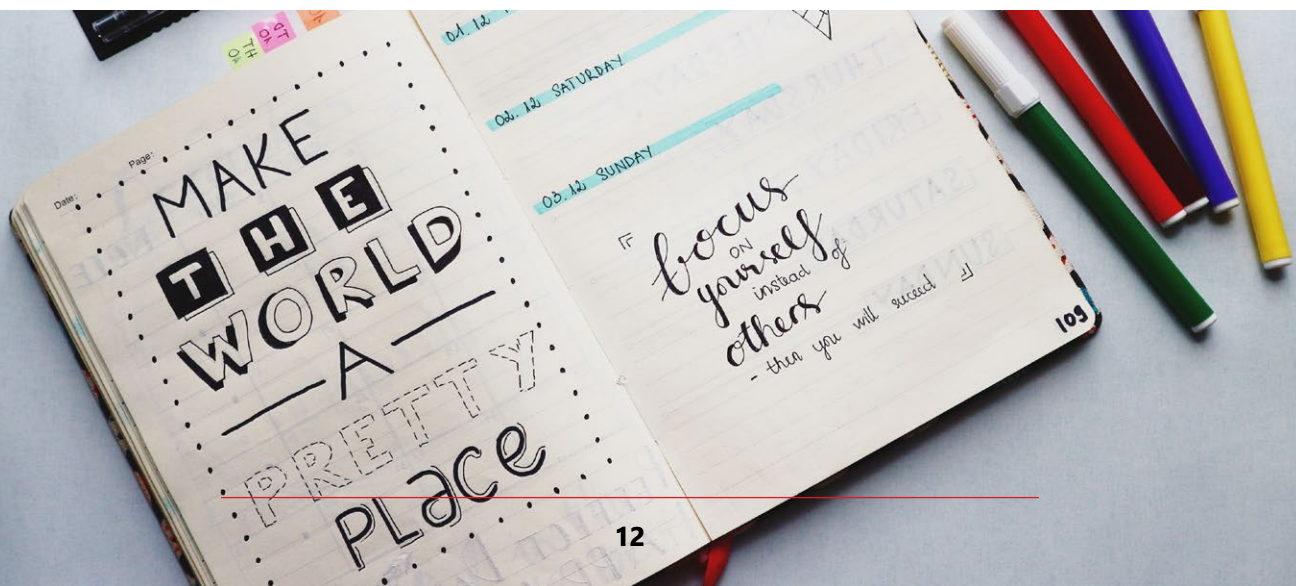 Page:
Date:
MAKE
THE
WORLD
A
PRETTY
PLACE
01.12
02.12 SATURDAY
03.12 SUNDAY
focus
ON
yourself
instead of
others
- then you will suceed
109
12